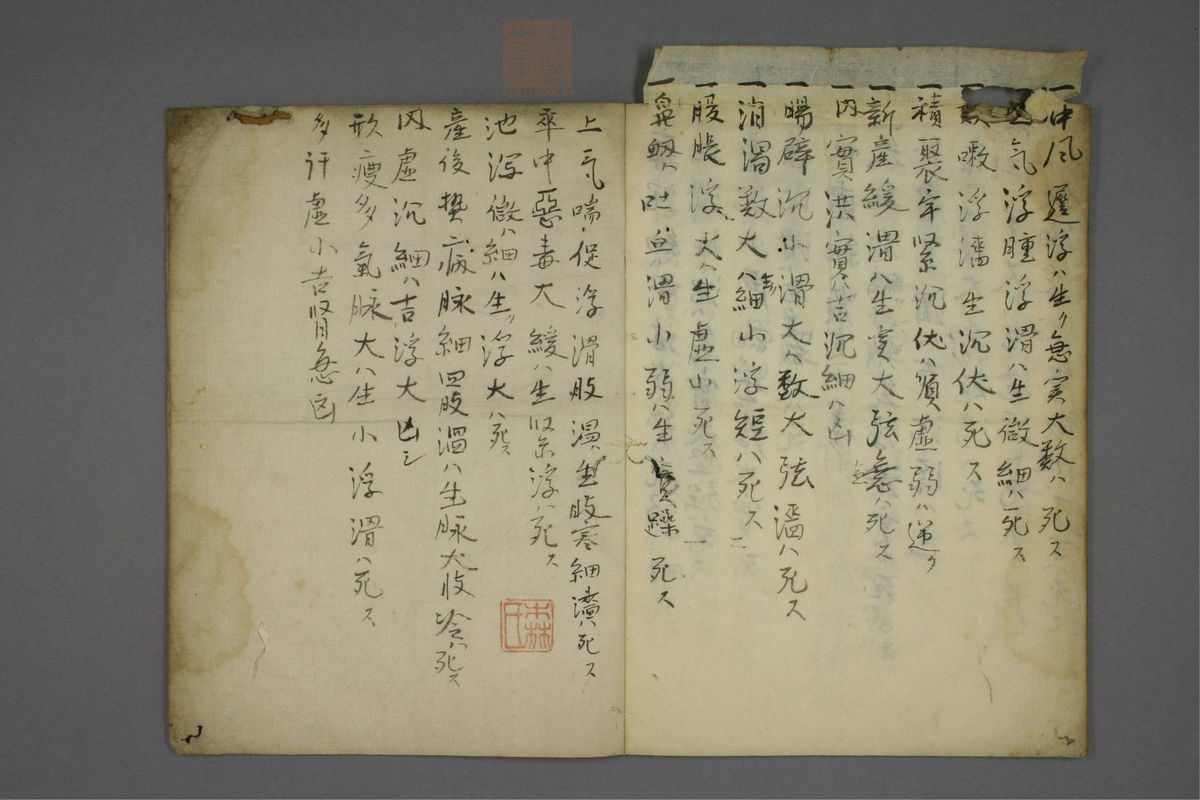 一中風 遲浮ハ生ク急実大数ハ死ス
気浮腫浮滑ハ生微細ハ死ス
嗽浮濇生沉伏ハ死ス
一積聚牢緊沉伏ハ順虚弱ハ逆ク
一新産緩滑ハ生実大弦急ハ死ス
一内實洪實ハ吉沉細ハ凶
一腸澼沉小滑大ハ数大弦濇ハ死ス
一消渇数大ハ生細小浮短ハ死ス
一腹脹浮大ハ生虚小死ス
一鼻衂ハ吐血滑小弱ハ生實躁死ス
上気喘促浮滑肢温生肢寒細濇ハ死ス
卒中惡毒大緩ハ生緊浮ハ死ス
池瀉微ハ細ハ生ク浮大ハ死ス
産後熱病脉細四肢温ハ生脉大肢冷ハ死ス
内虚沉細ハ吉浮大凶シ
形瘦多氣脉大ハ生小浮滑ハ死ス
多汗虚小吉緊急凶
森氏